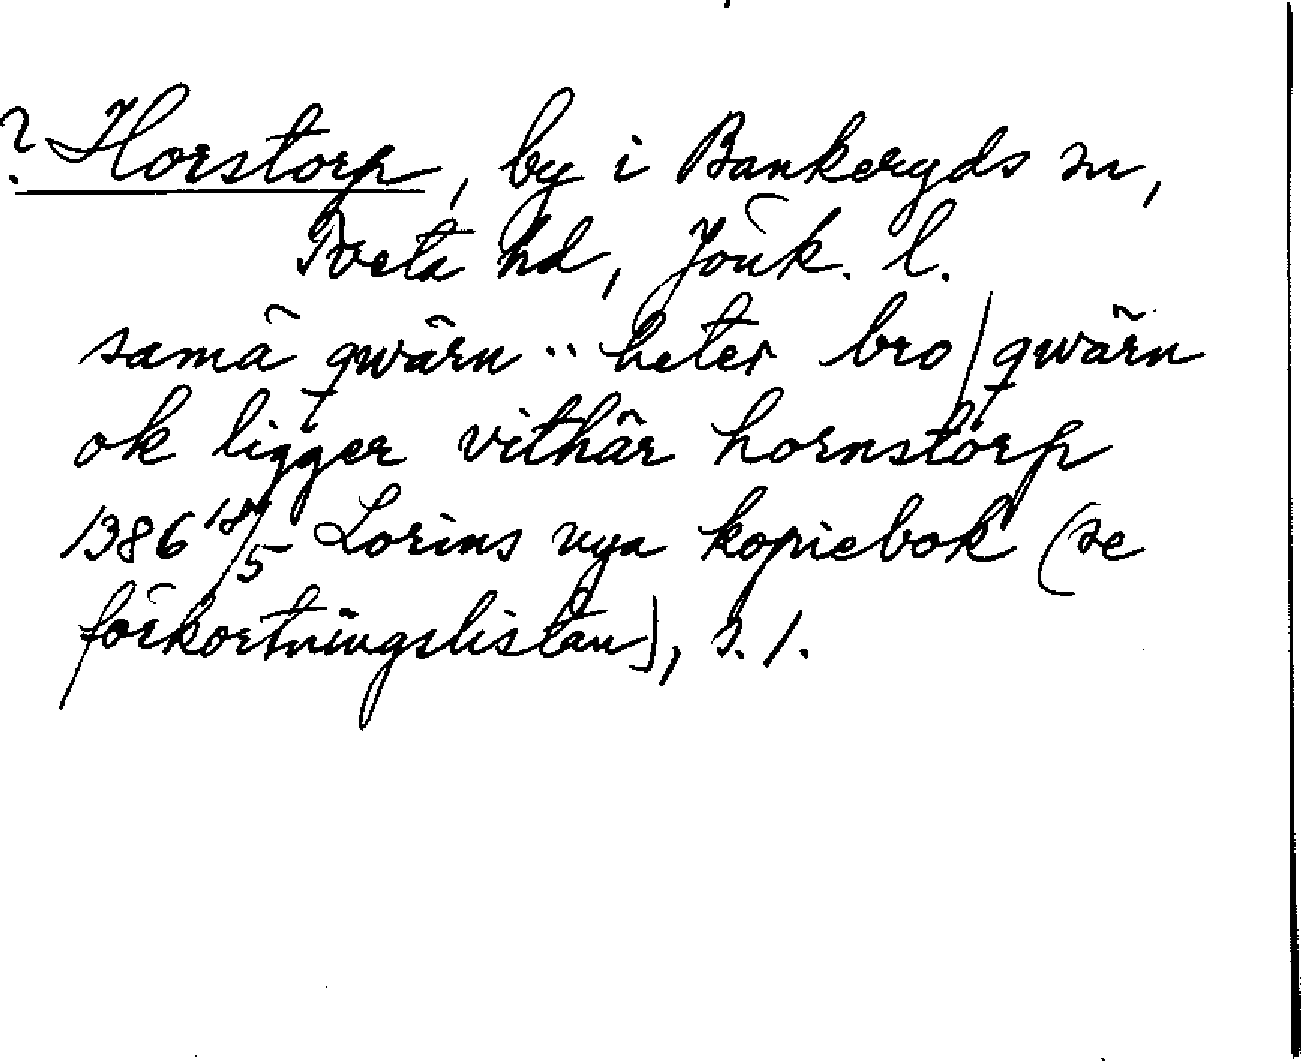 ? Horstorp, by i Bankeryds sn,
Tveta hd, Jönk. l.
samä qwärn .. heter bro/qwärn
ok ligger vithär hornstorp
1386 18/5 Lorins nya kopiebok (se
förkortningslistan), s. 1.